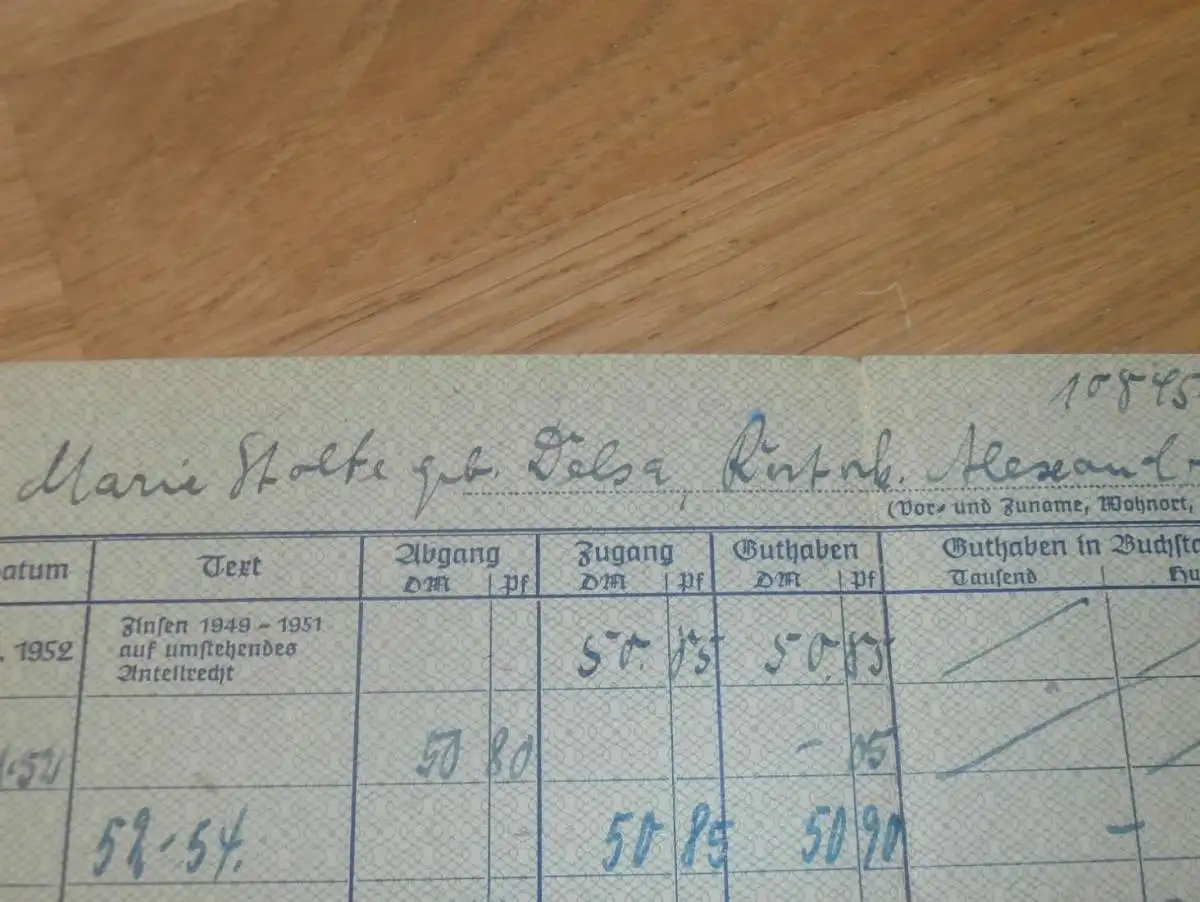 10845
Marie Stolte geb. Dälsa, Alexand
(Vor- und Zuname, Wohnort,
atum Text Abgang Zugang Guthaben Guthaben in Buchsta
DM Pf DM Pf DM Pf Tausend Hu
. 1952 Zinsen 1949 - 1951 50. 85 50. 85
auf umstehendes
Anteilrecht
.52 50 80 - 05
52-54. 50 85 50 90 -